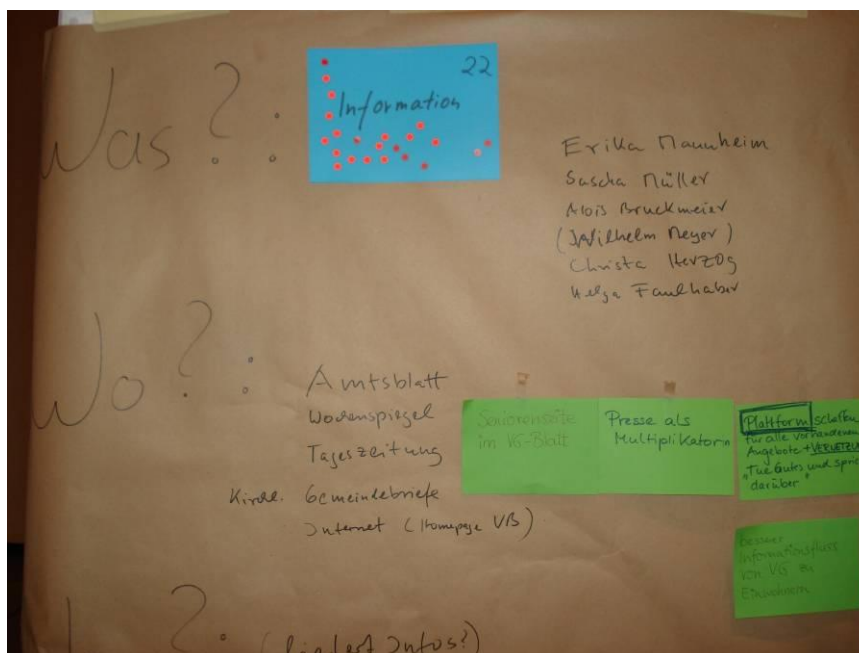 Was?:
22
Information
Erika Mannheim
Sascha Müller
Alois Bruckmeier
(Wilhelm Meyer)
Christa Herzog
Helga Faulhaber
Wo?:
Amtsblatt
Wochenspiegel
Tageszeitung
Kirchl. Gemeindebriefe
Internet (Homepage VB)
Seniorenseite
im VG-Blatt
Presse als
Multiplikatorin
Plattform schaffen
für alle vorhandenen
Angebote + VERNETZU
"Tue Gutes und spri
darüber"
besserer
Informationsfluss
von VG zu
Einwohnern
?: (liefert Infos?)